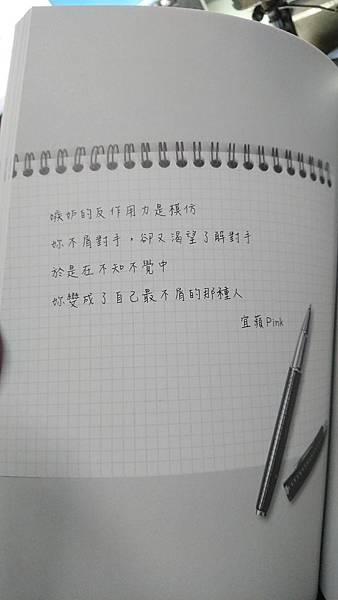 嫉妒的反作用力是模仿
妳不屑對手，卻又渴望了解對手
於是在不知不覺中
妳變成了自己最不屑的那種人
宜蘋Pink